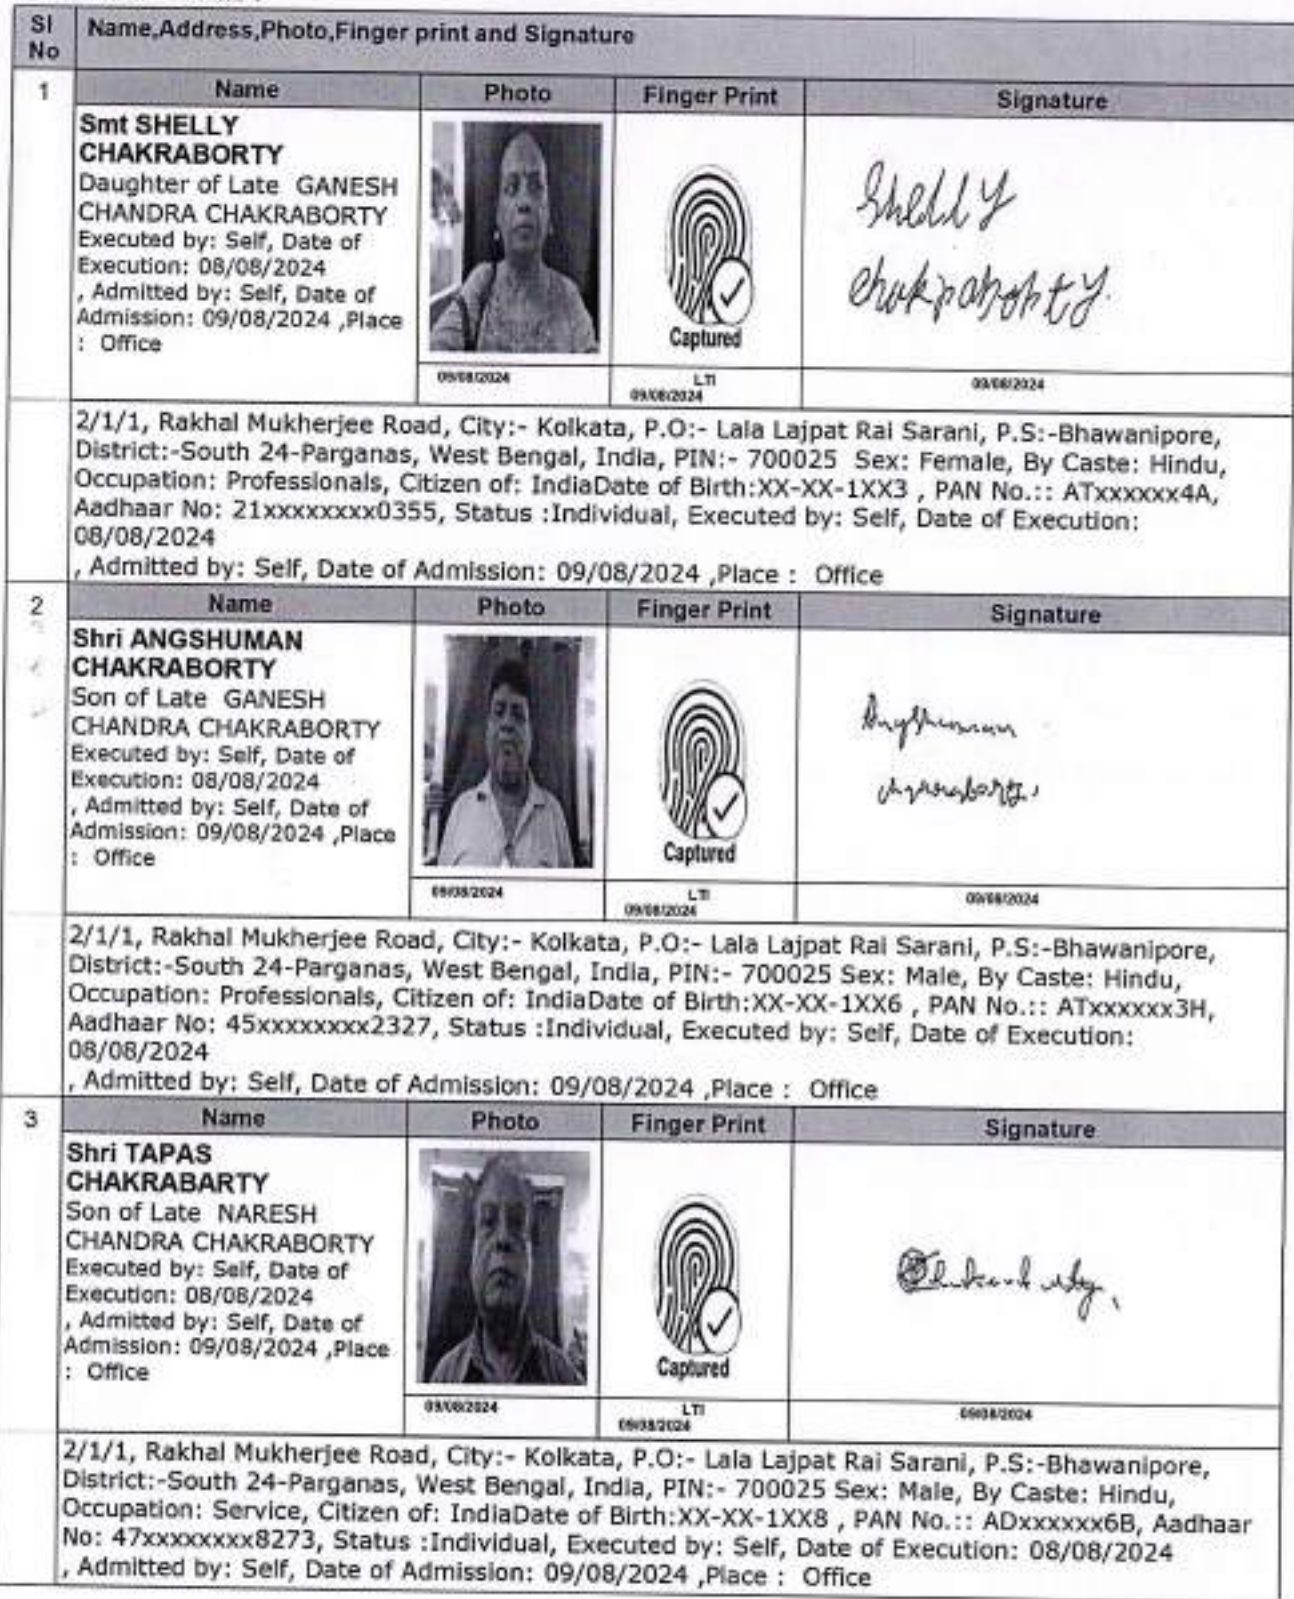 Sl No
Name,Address,Photo,Finger print and Signature
1
Name
Photo
Finger Print
Signature
Smt SHELLY
CHAKRABORTY
Daughter of Late GANESH
CHANDRA CHAKRABORTY
Executed by: Self, Date of
Execution: 08/08/2024
, Admitted by: Self, Date of
Admission: 09/08/2024 ,Place
: Office
Captured
Shelly
Chakraborty.
09/08/2024
LTI
09/08/2024
09/08/2024
2/1/1, Rakhal Mukherjee Road, City:- Kolkata, P.O:- Lala Lajpat Rai Sarani, P.S:-Bhawanipore,
District:-South 24-Parganas, West Bengal, India, PIN:- 700025 Sex: Female, By Caste: Hindu,
Occupation: Professionals, Citizen of: IndiaDate of Birth:XX-XX-1XX3 , PAN No.:: ATxxxxxx4A,
Aadhaar No: 21xxxxxxxx0355, Status :Individual, Executed by: Self, Date of Execution:
08/08/2024
, Admitted by: Self, Date of Admission: 09/08/2024 ,Place : Office
2
Name
Photo
Finger Print
Signature
Shri ANGSHUMAN
CHAKRABORTY
Son of Late GANESH
CHANDRA CHAKRABORTY
Executed by: Self, Date of
Execution: 08/08/2024
, Admitted by: Self, Date of
Admission: 09/08/2024 ,Place
: Office
Captured
Angshuman
09/08/2024
LTI
09/08/2024
09/08/2024
2/1/1, Rakhal Mukherjee Road, City:- Kolkata, P.O:- Lala Lajpat Rai Sarani, P.S:-Bhawanipore,
District:-South 24-Parganas, West Bengal, India, PIN:- 700025 Sex: Male, By Caste: Hindu,
Occupation: Professionals, Citizen of: IndiaDate of Birth:XX-XX-1XX6 , PAN No.:: ATxxxxxx3H,
Aadhaar No: 45xxxxxxxx2327, Status :Individual, Executed by: Self, Date of Execution:
08/08/2024
, Admitted by: Self, Date of Admission: 09/08/2024 ,Place : Office
3
Name
Photo
Finger Print
Signature
Shri TAPAS
CHAKRABARTY
Son of Late NARESH
CHANDRA CHAKRABORTY
Executed by: Self, Date of
Execution: 08/08/2024
, Admitted by: Self, Date of
Admission: 09/08/2024 ,Place
: Office
Captured
09/08/2024
LTI
09/08/2024
09/08/2024
2/1/1, Rakhal Mukherjee Road, City:- Kolkata, P.O:- Lala Lajpat Rai Sarani, P.S:-Bhawanipore,
District:-South 24-Parganas, West Bengal, India, PIN:- 700025 Sex: Male, By Caste: Hindu,
Occupation: Service, Citizen of: IndiaDate of Birth:XX-XX-1XX8 , PAN No.:: ADxxxxxx6B, Aadhaar
No: 47xxxxxxxx8273, Status :Individual, Executed by: Self, Date of Execution: 08/08/2024
, Admitted by: Self, Date of Admission: 09/08/2024 ,Place : Office